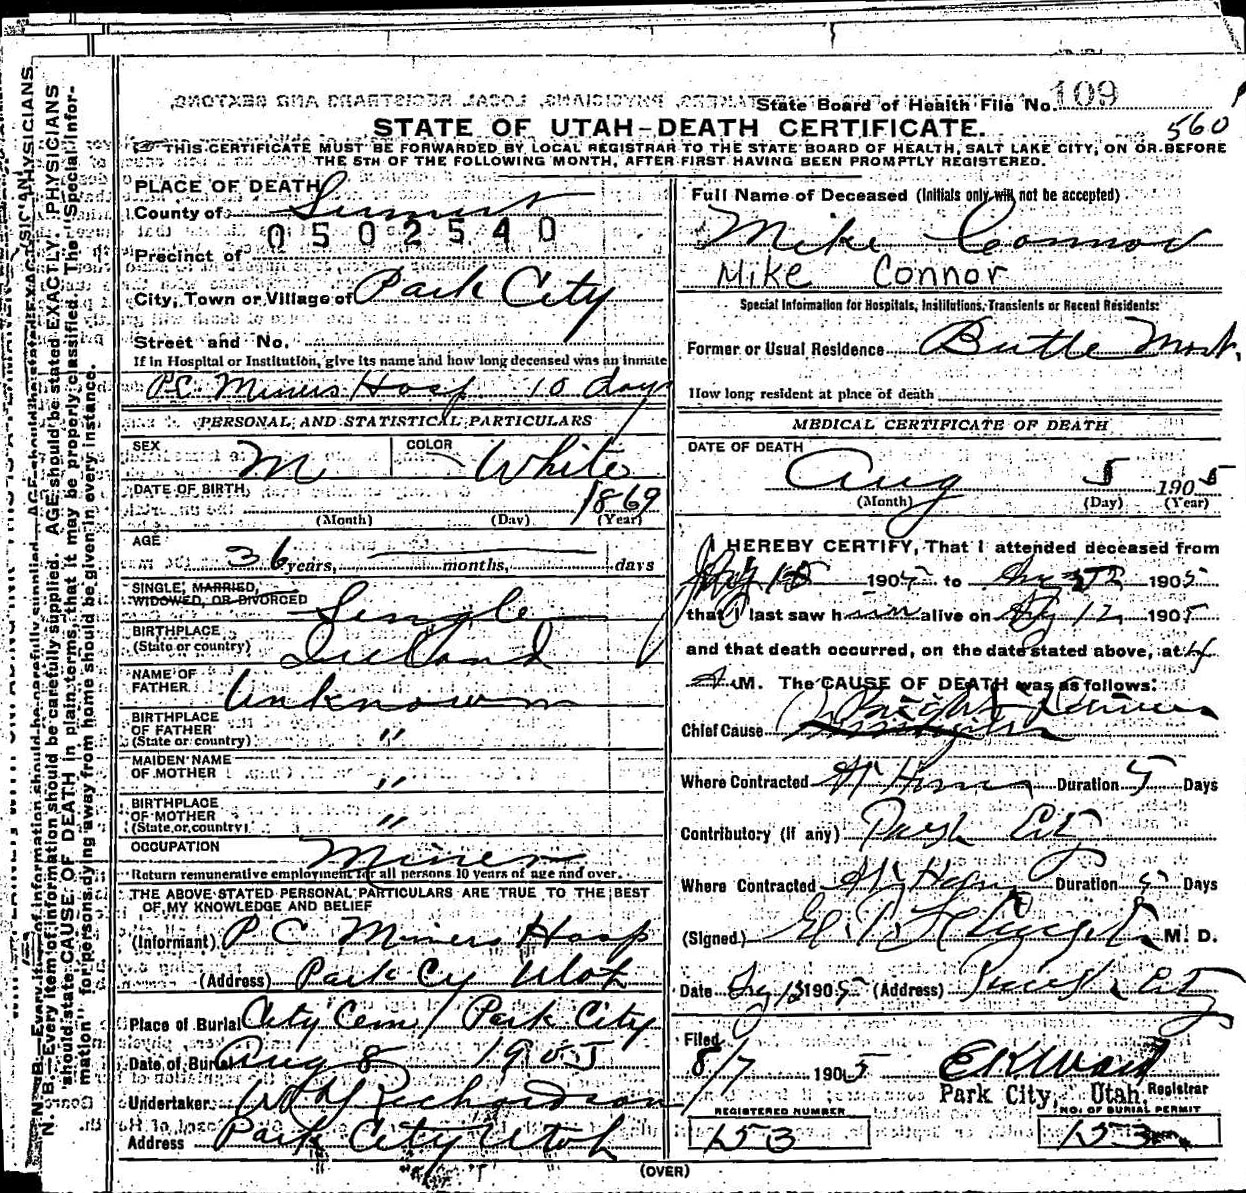 State Board of Health File No. 109
560
STATE OF UTAH-DEATH CERTIFICATE.
THIS CERTIFICATE MUST BE FORWARDED BY LOCAL REGISTRAR TO THE STATE BOARD OF HEALTH, SALT LAKE CITY, ON OR BEFORE
THE 5TH OF THE FOLLOWING MONTH, AFTER FIRST HAVING BEEN PROMPTLY REGISTERED.
PLACE OF DEATH
County of Summit
0502540
Precinct of
City, Town or Village of Park City
Street and No.
If in Hospital or Institution, give its name and how long deceased was an inmate
P.C. Miners Hosp. 10 days
PERSONAL AND STATISTICAL PARTICULARS
SEX M COLOR White
DATE OF BIRTH 1869
(Month) (Day) (Year)
AGE
36 years, months, days
SINGLE, MARRIED,
WIDOWED, OR DIVORCED Single
BIRTHPLACE
(State or country) Ireland
NAME OF
FATHER Unknown
BIRTHPLACE
OF FATHER
(State or country) "
MAIDEN NAME
OF MOTHER "
BIRTHPLACE
OF MOTHER
(State or country) "
OCCUPATION Miner
Return remunerative employment for all persons 10 years of age and over.
THE ABOVE STATED PERSONAL PARTICULARS ARE TRUE TO THE BEST
OF MY KNOWLEDGE AND BELIEF
(Informant) P C Miners Hosp
(Address) Park Cy Utah
Place of Burial City Cem / Park City
Date of Burial Aug 8 1905
Undertaker W H Richardson
Address Park City Utah
Full Name of Deceased (Initials only will not be accepted)
Mike Connor
Mike Connor
Special Information for Hospitals, Institutions, Transients or Recent Residents:
Former or Usual Residence Butte Mont.
How long resident at place of death
MEDICAL CERTIFICATE OF DEATH
DATE OF DEATH
Aug 5 1905
(Month) (Day) (Year)
I HEREBY CERTIFY, That I attended deceased from
1905 to 1905
that I last saw him alive on 1905
and that death occurred, on the date stated above, at 4
A.M. The CAUSE OF DEATH was as follows:
Chief Cause
Where Contracted Duration 5 Days
Contributory (if any) Park City
Where Contracted Duration 5 Days
(Signed) M. D.
Date 1905 (Address) Park City
Filed
8/7 1905 E K Ward
Park City, Utah, Registrar
REGISTERED NUMBER
153
NO. OF BURIAL PERMIT
153
(OVER)
N. B.—Every item of information should be carefully supplied. AGE should be stated EXACTLY. PHYSICIANS
should state CAUSE OF DEATH in plain terms, that it may be properly classified. The "Special Infor-
mation" for persons dying away from home should be given in every instance.